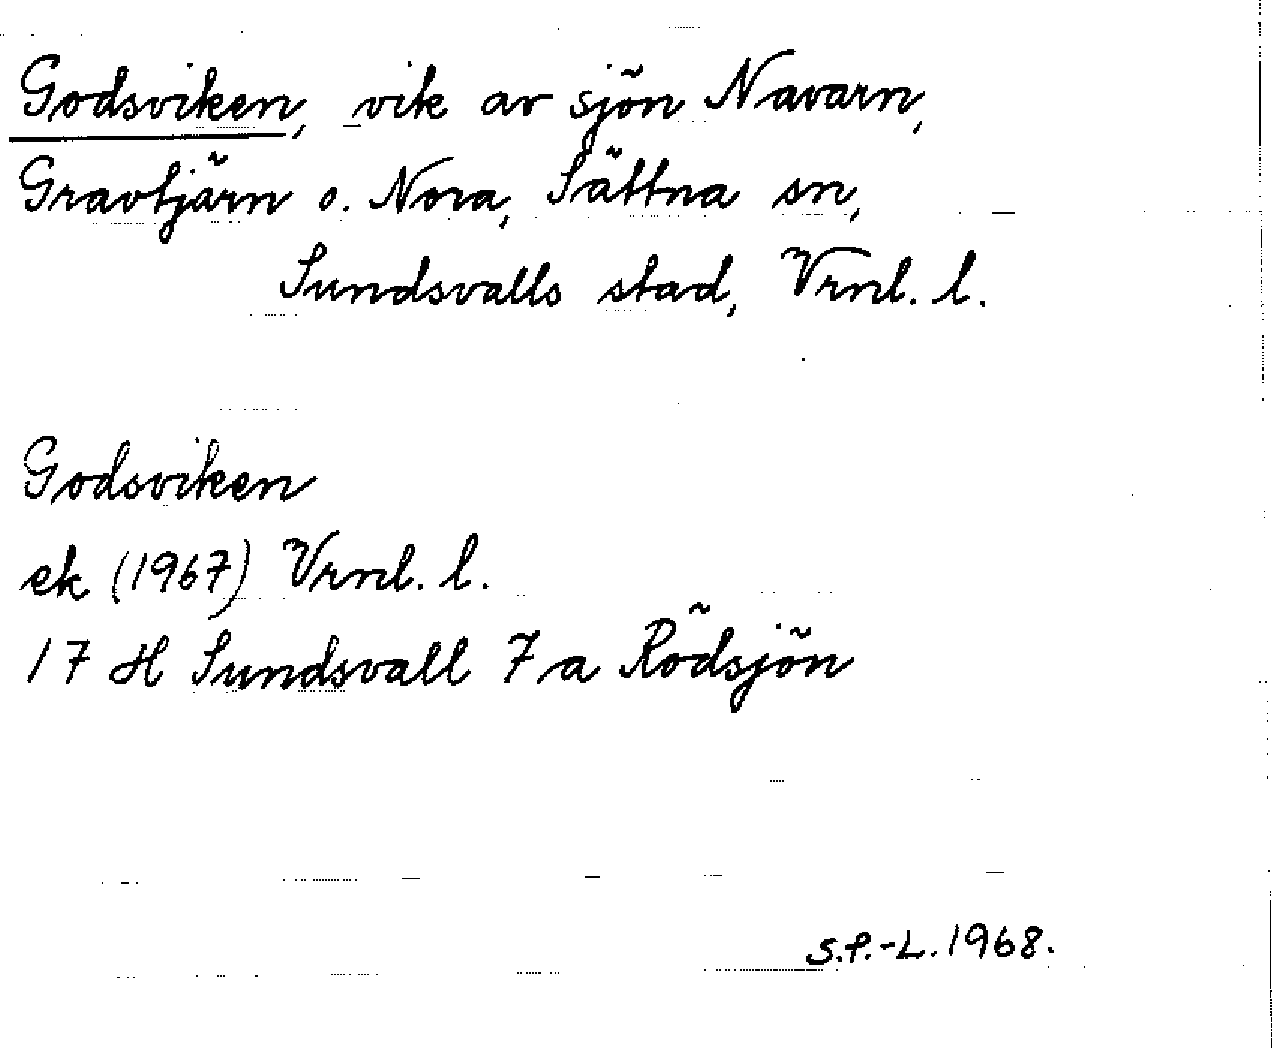 Godsviken, vik av sjön Navarn,
Gravtjärn o. Nora, Sättna sn,
Sundsvalls stad, Vrnl. l.
Godsviken
ek (1967) Vrnl. l.
17 H Sundsvall 7a Rödsjön
S.P.-L. 1968.